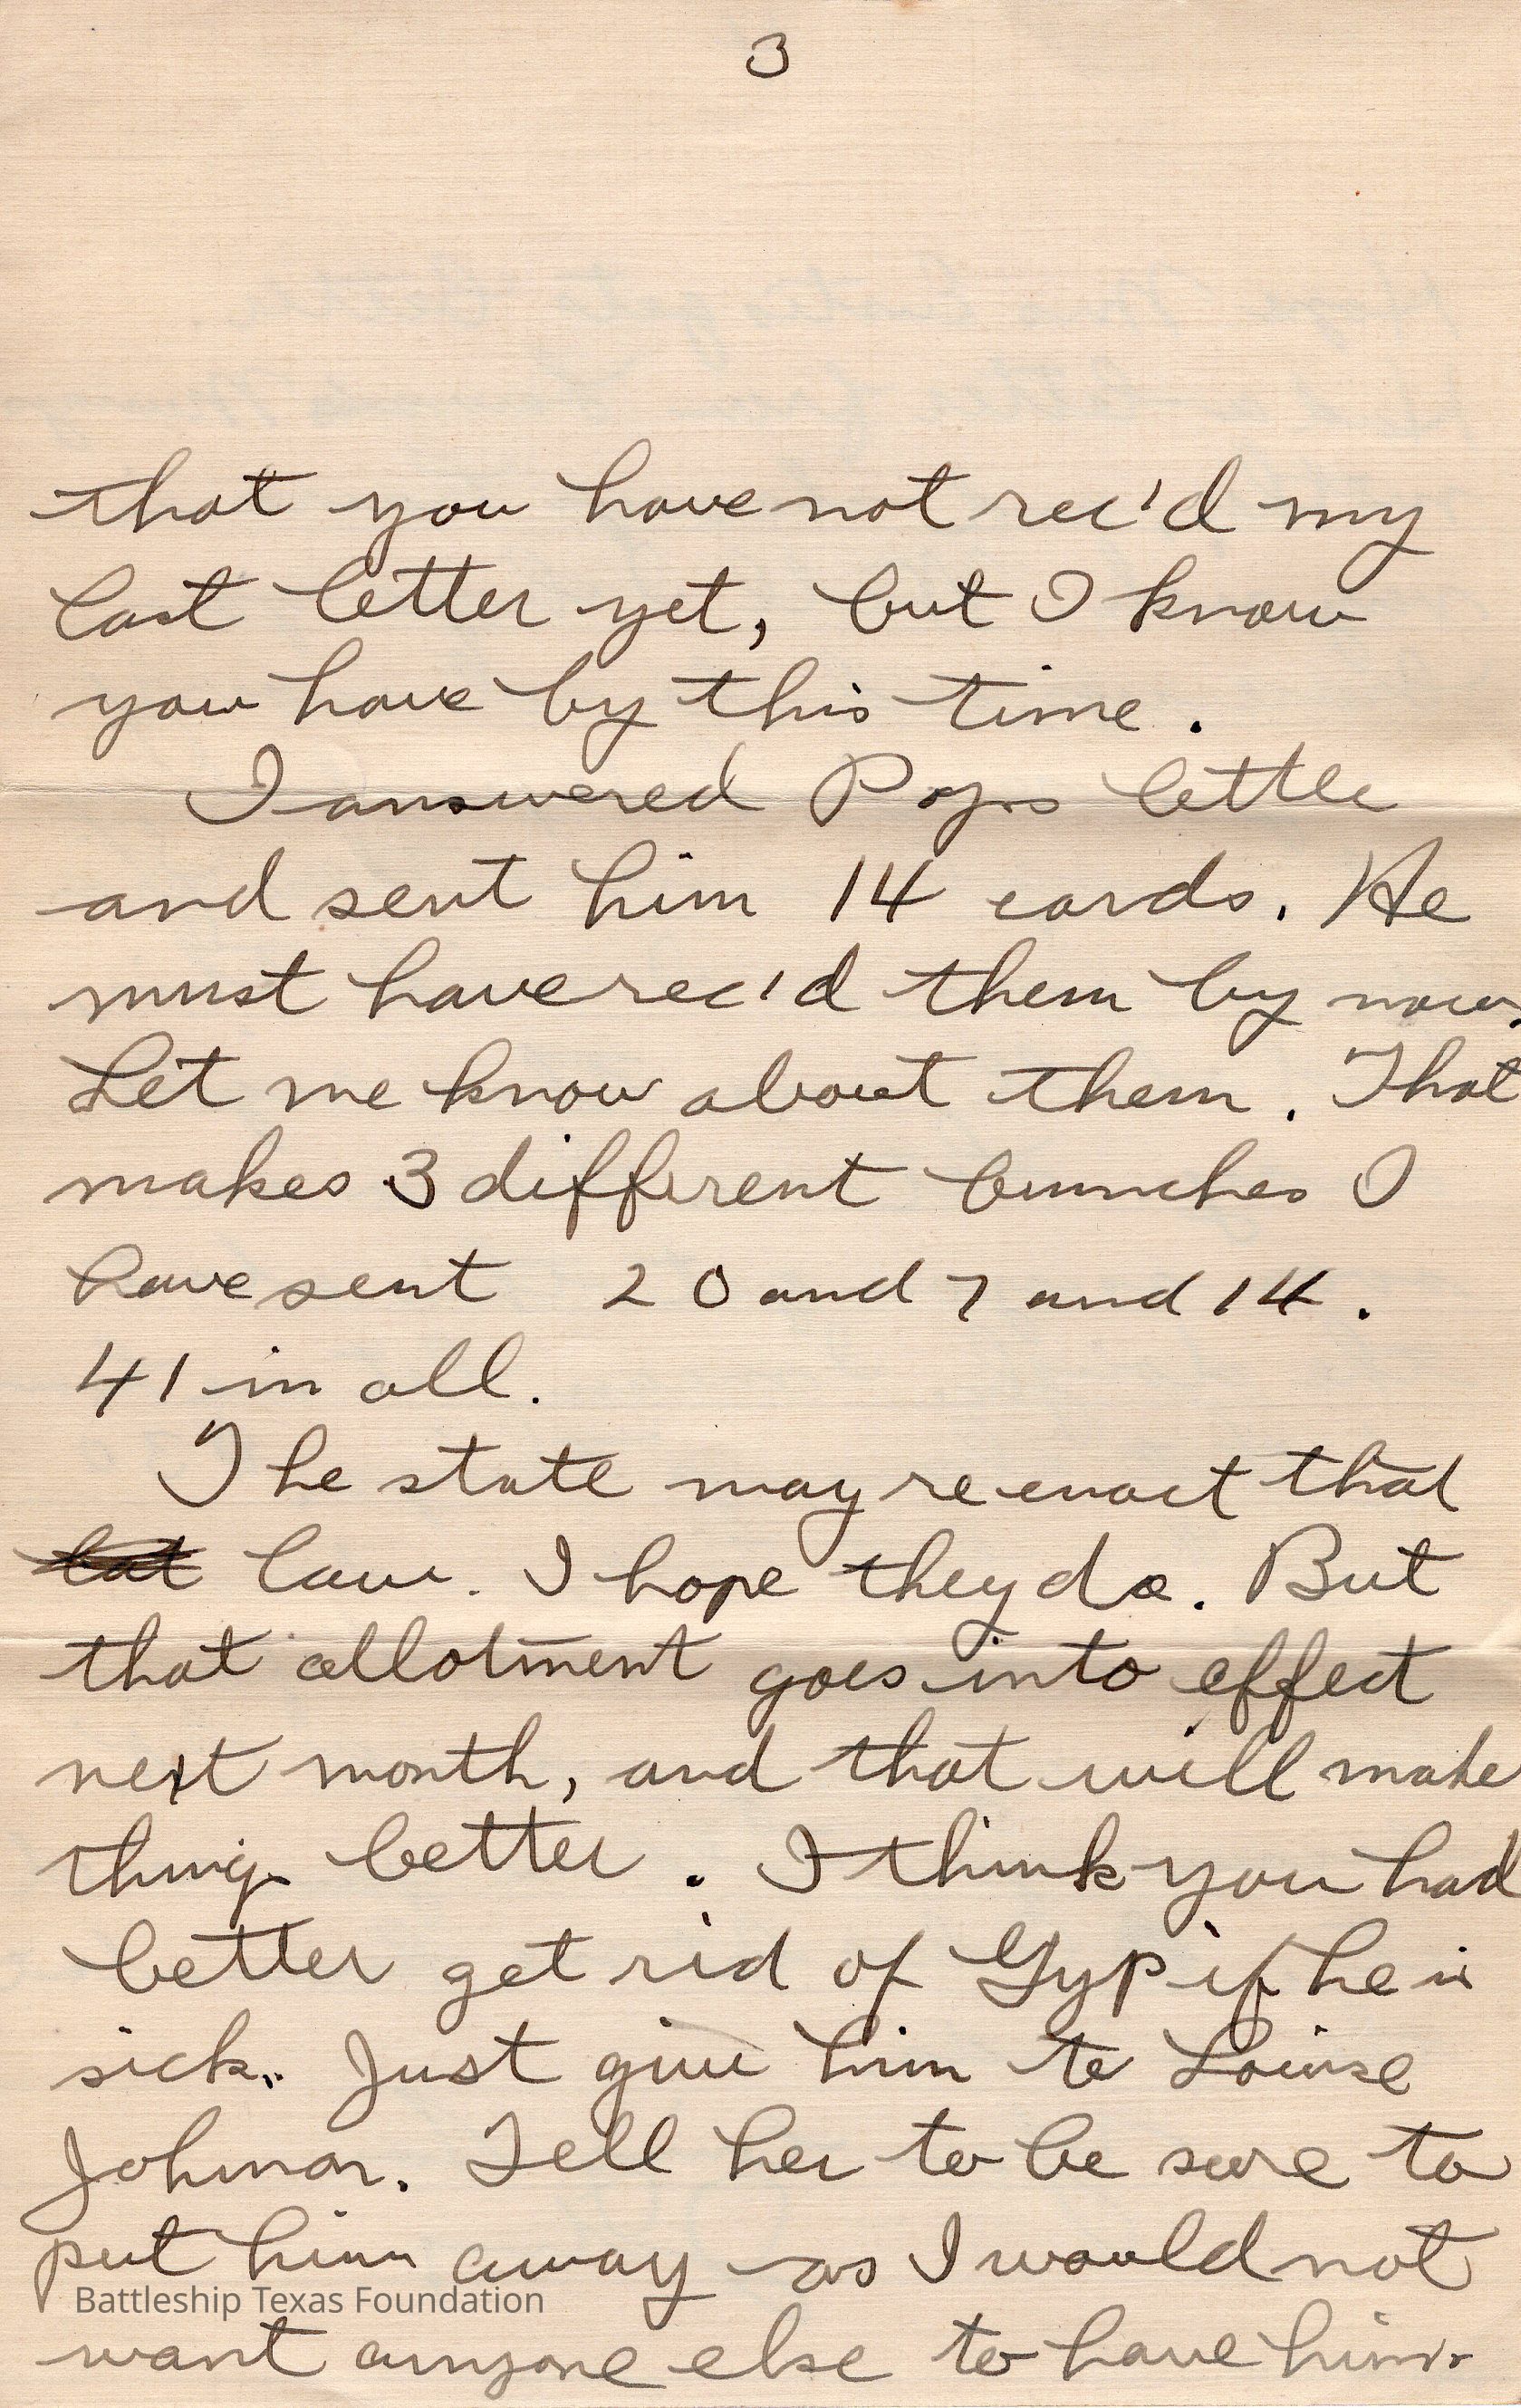 3
that you have not rec'd my
last letter yet, but I know
you have by this time.
I answered Pops lettle
and sent him 14 cards. He
must have rec'd them by now.
Let me know about them. That
makes 3 different bunches I
have sent 20 and 7 and 14.
41 in all.
The state may re enact that
law. I hope they do. But
that allotment goes into effect
next month, and that will make
things better. I think you had
better get rid of Gyp if he is
sick. Just give him to Louise
Johnson. Tell her to be sure to
put him away as I would not
Battleship Texas Foundation
want anyone else to have him.